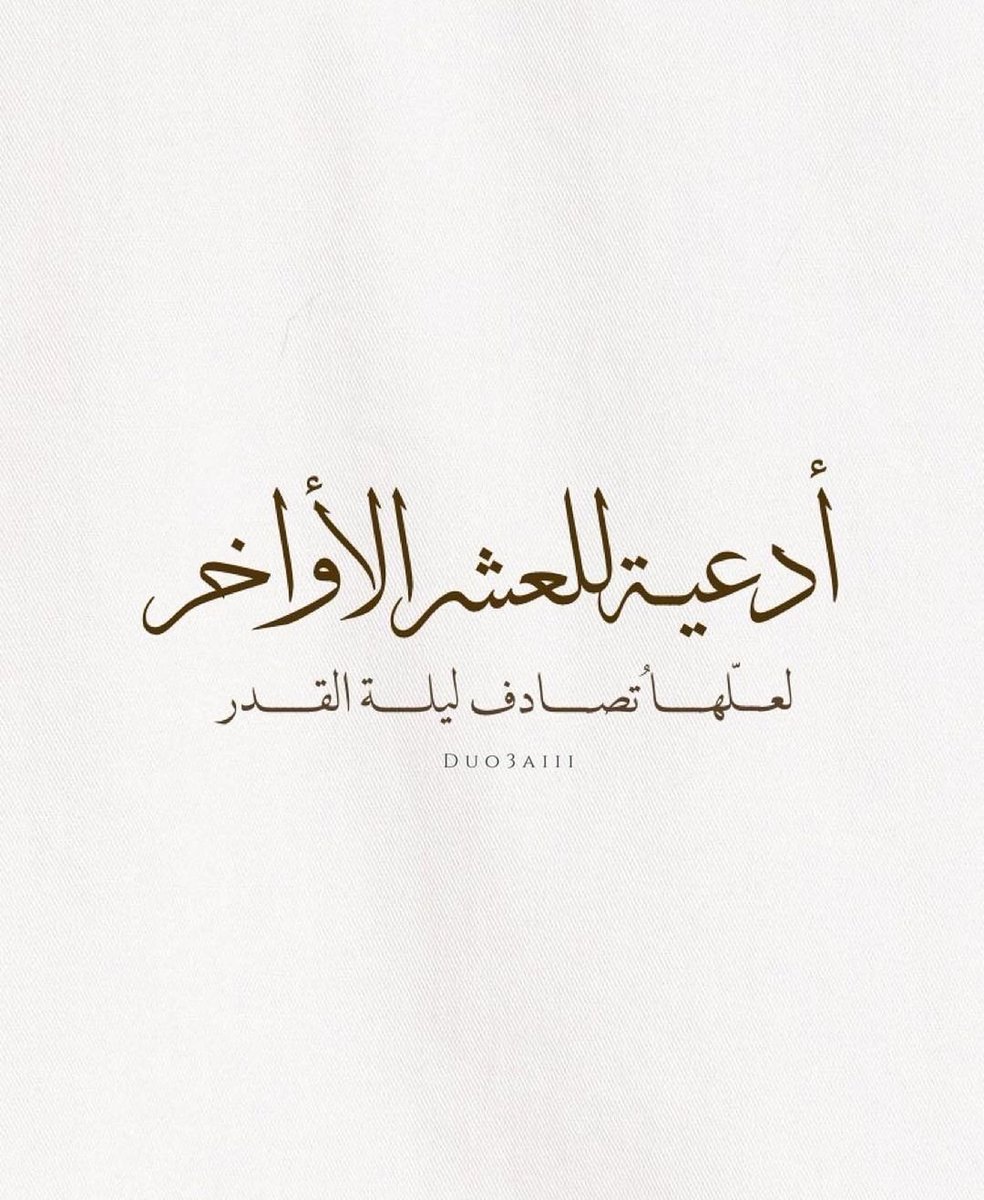 أدعية للعشر الأواخر
لعلّها تُصادف ليلة القدر
Duo3aiii